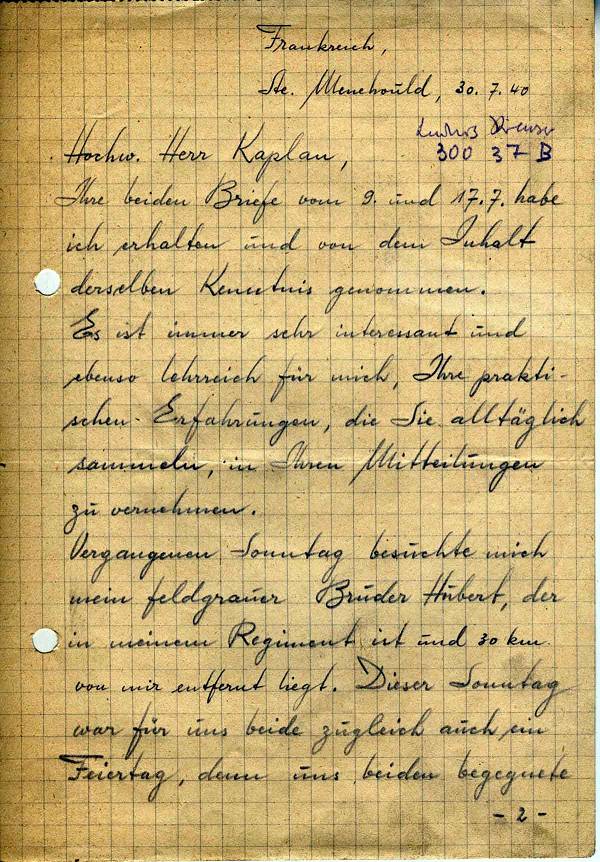 Frankreich,
Ste. Menehould, 30.7.40
300 37 B
Hochw. Herr Kaplan,
Ihre beiden Briefe vom 9. und 17.7. habe
ich erhalten und von dem Inhalt
derselben Kenntnis genommen.
Es ist immer sehr interessant und
ebenso lehrreich für mich, Ihre prakti-
schen Erfahrungen, die Sie alltäglich
sammeln, in Ihren Mitteilungen
zu vernehmen.
Vergangenen Sonntag besuchte mich
mein feldgrauer Bruder Hubert, der
in meinem Regiment ist und 30 km
von mir entfernt liegt. Dieser Sonntag
war für uns beide zugleich auch ein
Feiertag, denn uns beiden begegnete
- 2 -